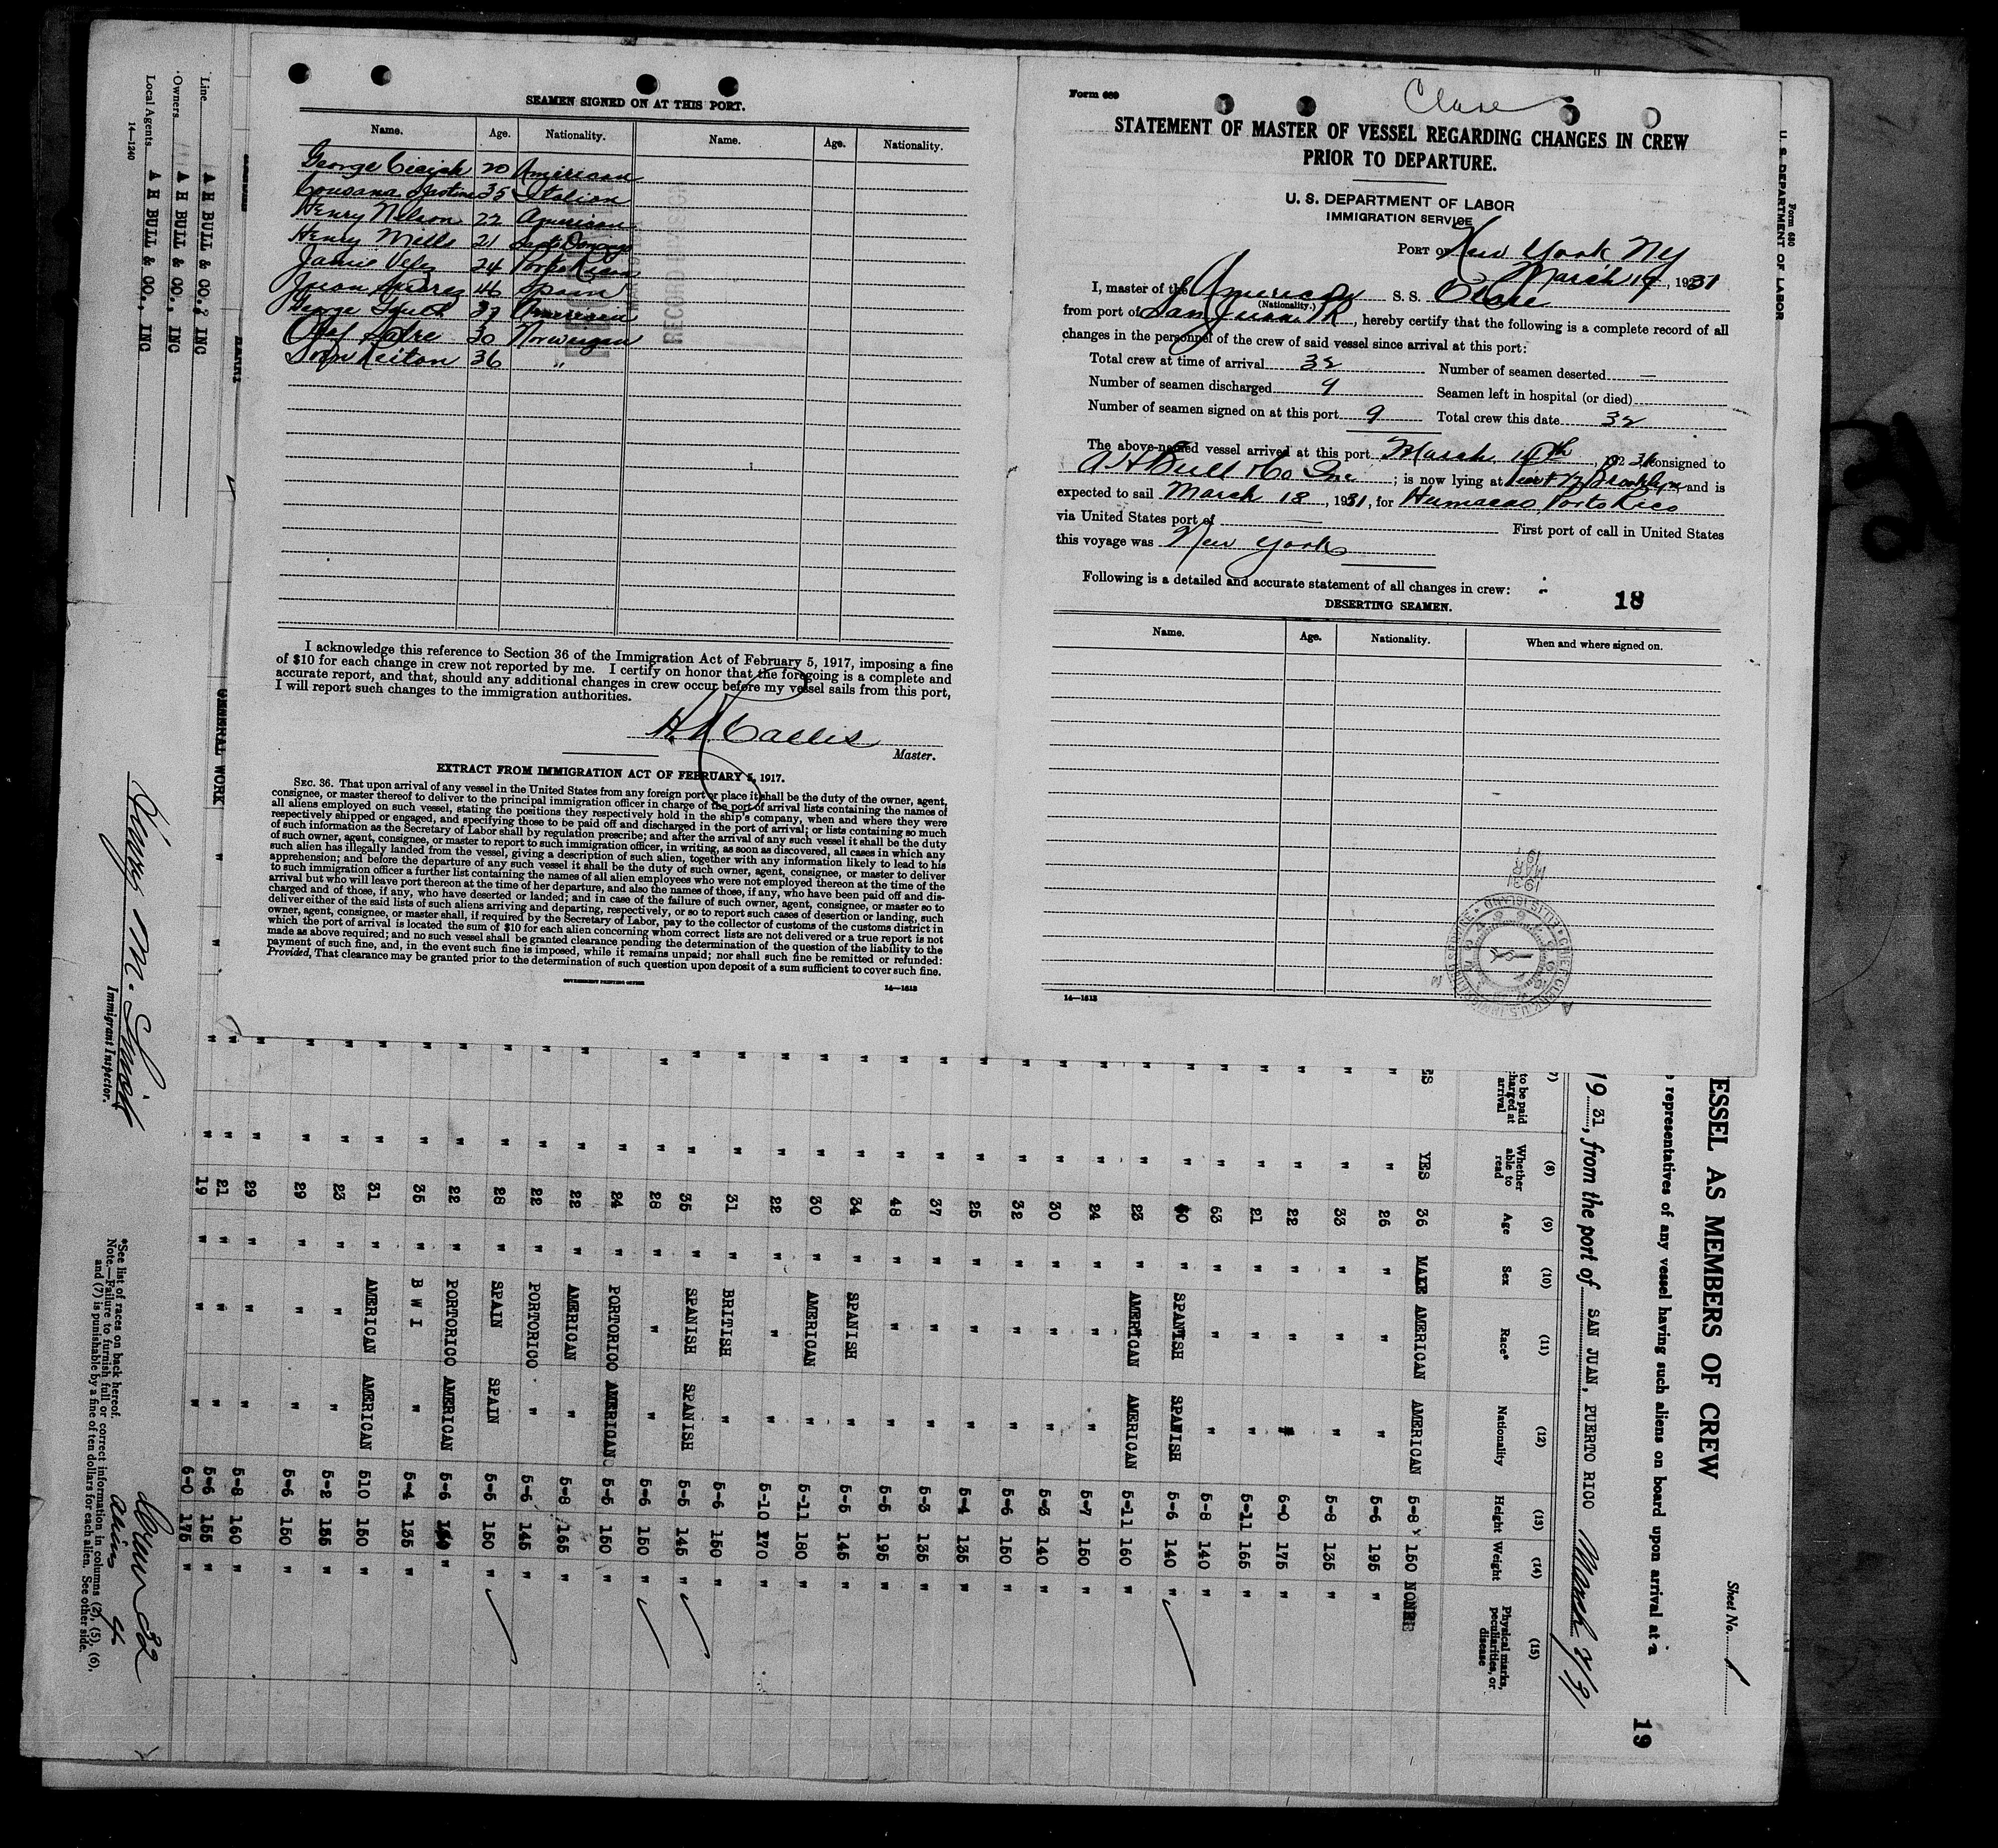 SEAMEN SIGNED ON AT THIS PORT.
Name. Age. Nationality. Name. Age. Nationality.
George 20 American
35 Italian
Henry Nelson 22 American
Henry Mills 21
Jamie Velez 24 Porto Rican
Juan Suarez 46 Spain
George 37 American
Olaf 30 Norweigan
John Reiton 36 "
I acknowledge this reference to Section 36 of the Immigration Act of February 5, 1917, imposing a fine
of $10 for each change in crew not reported by me. I certify on honor that the foregoing is a complete and
accurate report, and that, should any additional changes in crew occur before my vessel sails from this port,
I will report such changes to the immigration authorities.
Callis
Master.
EXTRACT FROM IMMIGRATION ACT OF FEBRUARY 5, 1917.
SEC. 36. That upon arrival of any vessel in the United States from any foreign port or place it shall be the duty of the owner, agent,
consignee, or master thereof to deliver to the principal immigration officer in charge of the port of arrival lists containing the names of
all aliens employed on such vessel, stating the positions they respectively hold in the ship's company, when and where they were
respectively shipped or engaged, and specifying those to be paid off and discharged in the port of arrival; or lists containing so much
of such information as the Secretary of Labor shall by regulation prescribe; and after the arrival of any such vessel it shall be the duty
of such owner, agent, consignee, or master to report to such immigration officer, in writing, as soon as discovered, all cases in which any
such alien has illegally landed from the vessel, giving a description of such alien, together with any information likely to lead to his
apprehension; and before the departure of any such vessel it shall be the duty of such owner, agent, consignee, or master to deliver
to such immigration officer a further list containing the names of all alien employees who were not employed thereon at the time of the
arrival but who will leave port thereon at the time of her departure, and also the names of those, if any, who have been paid off and dis-
charged and of those, if any, who have deserted or landed; and in case of the failure of such owner, agent, consignee, or master so to
deliver either of the said lists of such aliens arriving and departing, respectively, or so to report such cases of desertion or landing, such
owner, agent, consignee, or master shall, if required by the Secretary of Labor, pay to the collector of customs of the customs district in
which the port of arrival is located the sum of $10 for each alien concerning whom correct lists are not delivered or a true report is not
made as above required; and no such vessel shall be granted clearance pending the determination of the question of the liability to the
payment of such fine, and, in the event such fine is imposed, while it remains unpaid; nor shall such fine be remitted or refunded:
Provided, That clearance may be granted prior to the determination of such question upon deposit of a sum sufficient to cover such fine.
GOVERNMENT PRINTING OFFICE
14—1613
RECORD DIVISION
Form 689
Clare
STATEMENT OF MASTER OF VESSEL REGARDING CHANGES IN CREW
PRIOR TO DEPARTURE.
U. S. DEPARTMENT OF LABOR
IMMIGRATION SERVICE
PORT OF New York NY
March 17, 1931
I, master of the American S. S. Clare
(Nationality.)
from port of San Juan PR, hereby certify that the following is a complete record of all
changes in the personnel of the crew of said vessel since arrival at this port:
Total crew at time of arrival 32 Number of seamen deserted —
Number of seamen discharged 9 Seamen left in hospital (or died)
Number of seamen signed on at this port 9 Total crew this date 32
The above-named vessel arrived at this port March 192 31 consigned to
A H Bull & Co Inc; is now lying at Brooklyn and is
expected to sail March 18, 1931, for Humacao, Porto Rico
via United States port of — First port of call in United States
this voyage was New York
Following is a detailed and accurate statement of all changes in crew:
18
DESERTING SEAMEN.
Name. Age. Nationality. When and where signed on.
14—1613
1931
MAR
CHIEF CLERK U.S. IMMIGRATION SERVICE ELLIS ISLAND
Form 680
U. S. DEPARTMENT OF LABOR
ESSEL AS MEMBERS OF CREW
Sheet No. 1
representatives of any vessel having such aliens on board upon arrival at a
19
19 31, from the port of SAN JUAN, PUERTO RICO March
to be paid
arrival
(8) Whether able to read
(9) Age
(10) Sex
(11) Race*
(12) Nationality
(13) Height
(14) Weight
(15) Physical marks, peculiarities, or disease
YES 36 MALE AMERICAN AMERICAN 5-8 150 NONE
" 26 " " " 5-6 195 "
" 33 " " " 5-8 135 "
" 22 " " " 6-0 175 "
" 21 " " " 5-11 165 "
" 63 " " " 5-8 140 "
" 40 " SPANISH SPANISH 5-6 140 "
" 23 " AMERICAN AMERICAN 5-11 160 "
" 24 " " " 5-7 150 "
" 30 " " " 5-3 140 "
" 32 " " " 5-6 150 "
" 25 " " " 5-4 135 "
" 37 " " " 5-3 135 "
" 48 " " " 5-5 195 "
" 34 " SPANISH " 5-5 145 "
" 30 " AMERICAN " 5-11 180 "
" 22 " " " 5-10 170 "
" 31 " BRITISH " 5-6 150 "
" 35 " SPANISH SPANISH 5-5 145 "
" 28 " " " 5-6 150 "
" 24 " PORTORICO AMERICAN 5-5 150 "
" 22 " AMERICAN " 5-8 165 "
" 22 " PORTORICO " 5-6 145 "
" 28 " SPAIN SPAIN 5-5 150 "
" 22 " PORTORICO AMERICAN 5-6 "
" 35 " B W I " 5-4 135 "
" 31 " AMERICAN AMERICAN 510 150 "
" 23 " " " 5-2 155 "
" 29 " " " 5-6 150 "
" 29 " " " 5-8 160 "
" 21 " " " 5-6 155 "
" 19 " " " 6-0 175 "
GENERAL WORK
Line A H BULL & CO., INC
Owners A H BULL & CO., INC
Local Agents A H BULL & CO., INC
14—1240
Immigrant Inspector.
*See list of races on back hereof.
Note.—Failure to furnish full or correct information in columns (2), (5), (6),
and (7) is punishable by a fine of ten dollars for each alien. See other side.
Crew 32
Aliens 4